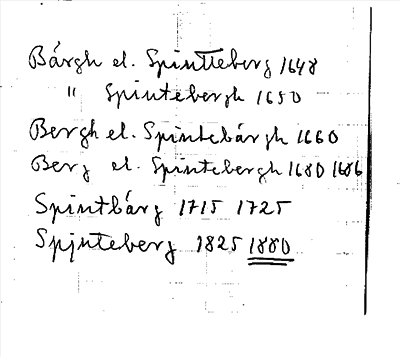 Bárgh el. Spintteberg 1648
" Spintebergh 1650
Bergh el. Spintebárgh 1660
Berg el. Spintebergh 1680 1686
Spintbárg 1715 1725
Spjnteberg 1825 1880